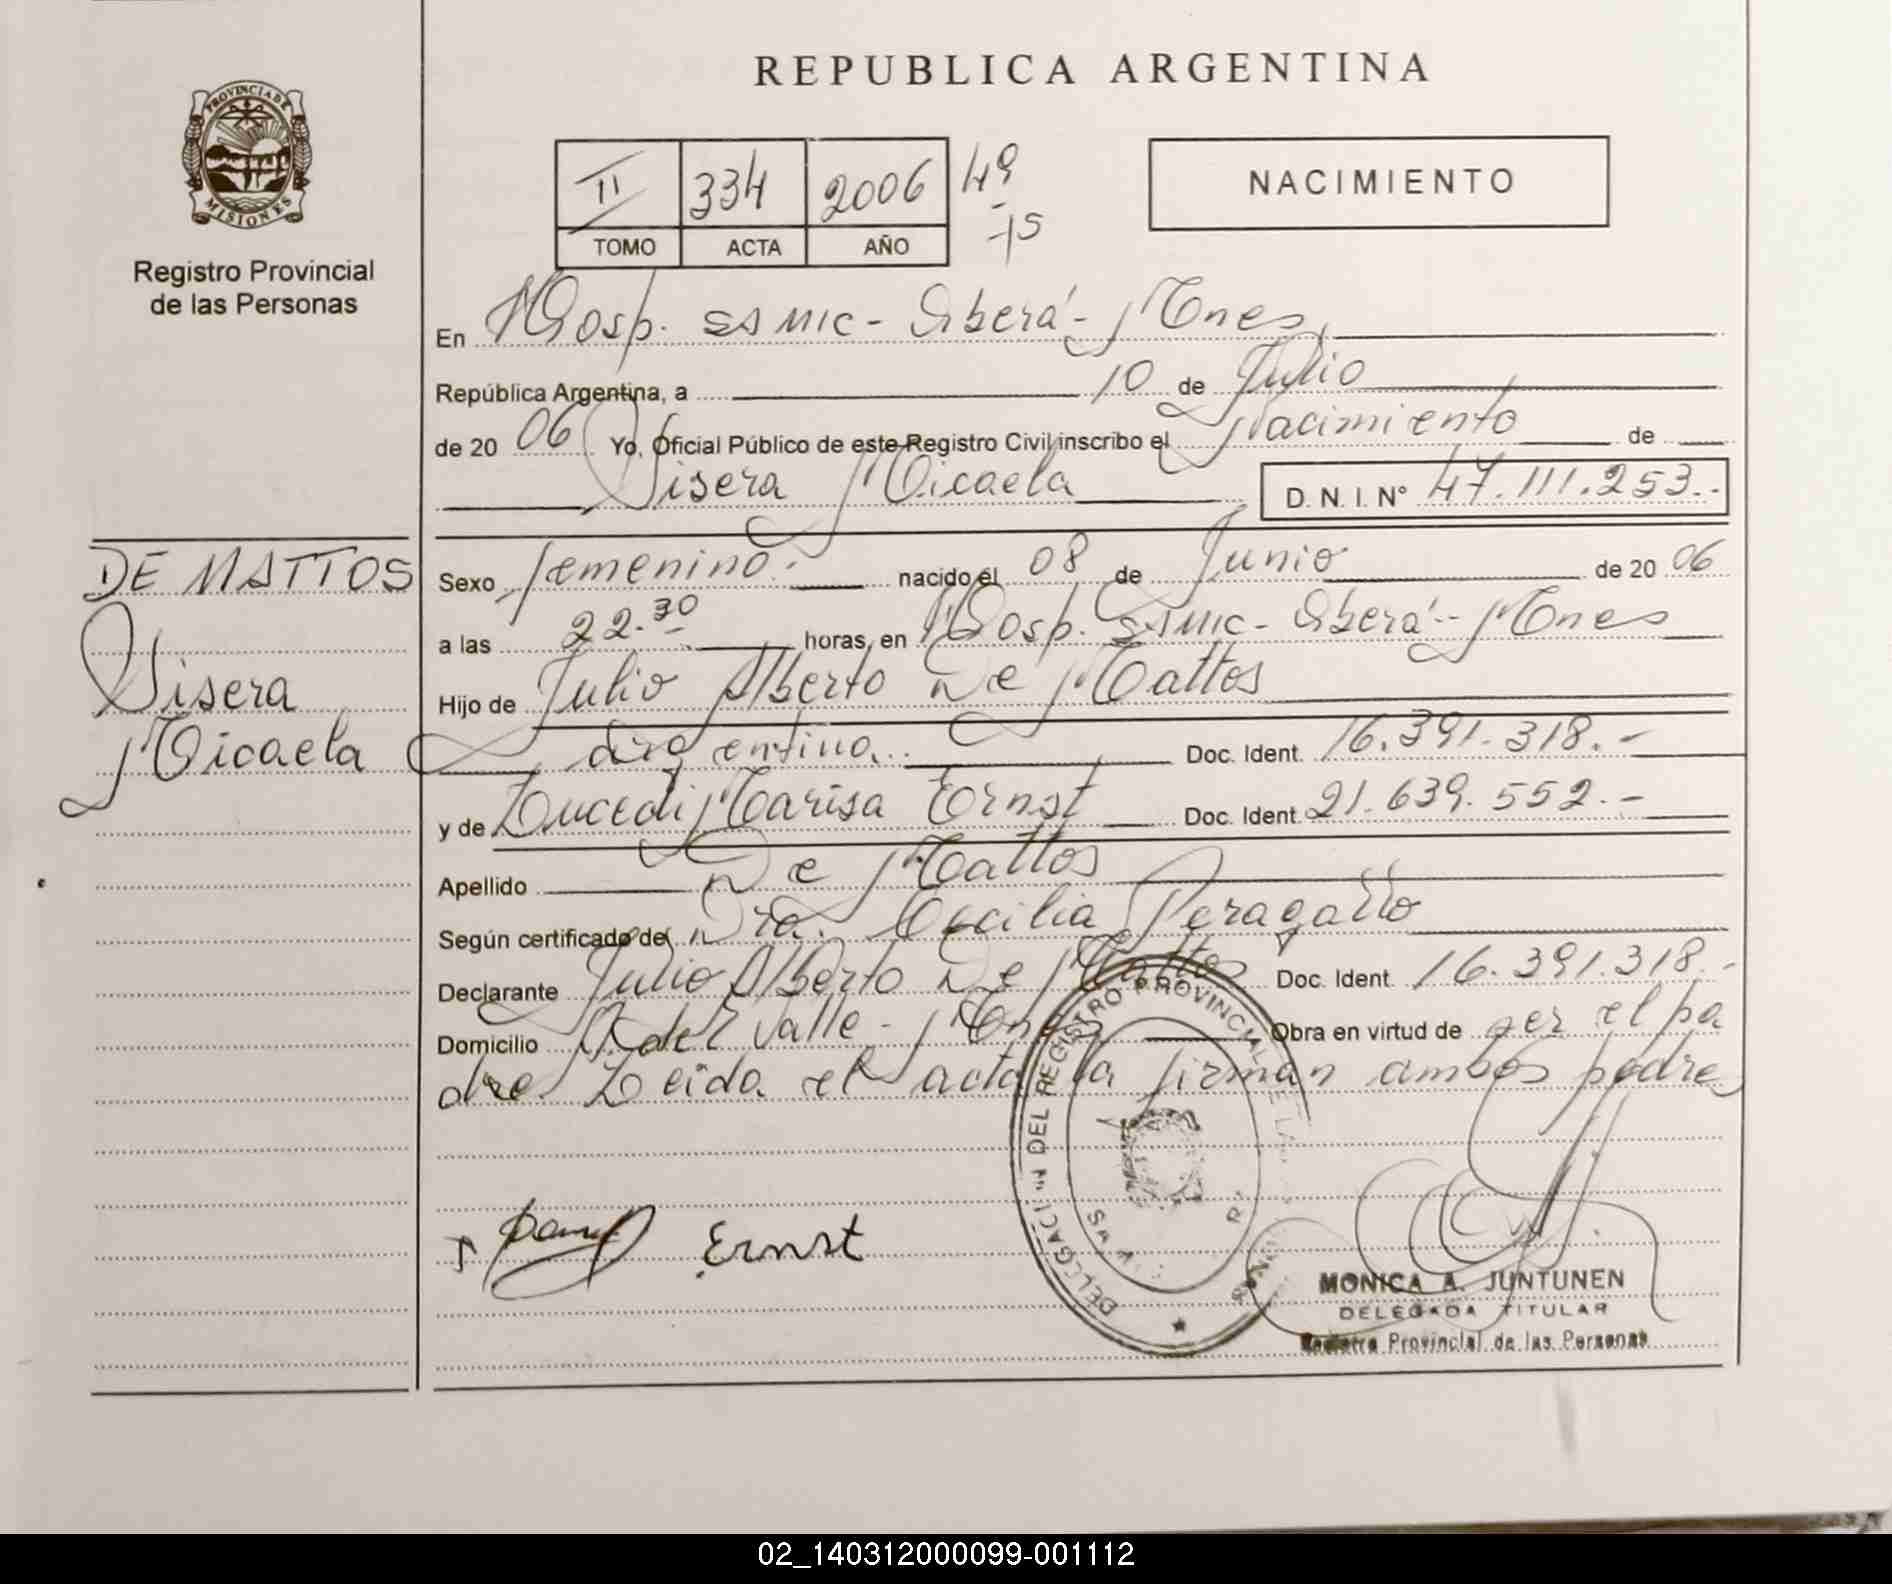 REPUBLICA ARGENTINA
PROVINCIA DE
MISIONES
Registro Provincial
de las Personas
II 334 2006 49
TOMO ACTA AÑO -75
NACIMIENTO
En Hosp. SAMIC - Oberá - Mnes
República Argentina, a 10 de Julio
de 2006 Yo, Oficial Público de este Registro Civil inscribo el Nacimiento de
Sisera Micaela D. N. I. N° 47.111.253.-
DE MATTOS
Sisera
Micaela
Sexo femenino.- nacido el 08 de Junio de 2006
a las 22.30 horas, en Hosp. SAMIC - Oberá - Mnes
Hijo de Julio Alberto De Mattos
argentino. Doc. Ident. 16.391.318.-
y de Lucedi Marisa Ernst Doc. Ident 21.639.552.-
Apellido De Mattos
Según certificado de Dra. Cecilia Peragallo
Declarante Julio Alberto De Mattos Doc. Ident. 16.391.318.-
Domicilio A. del Valle - Mnes Obra en virtud de ser el pa
dre Leida el acta la firman ambos padres
Ernst
DELEGACION DEL REGISTRO PROVINCIAL DE LAS
MONICA A. JUNTUNEN
DELEGADA TITULAR
Registro Provincial de las Personas
02_140312000099-001112